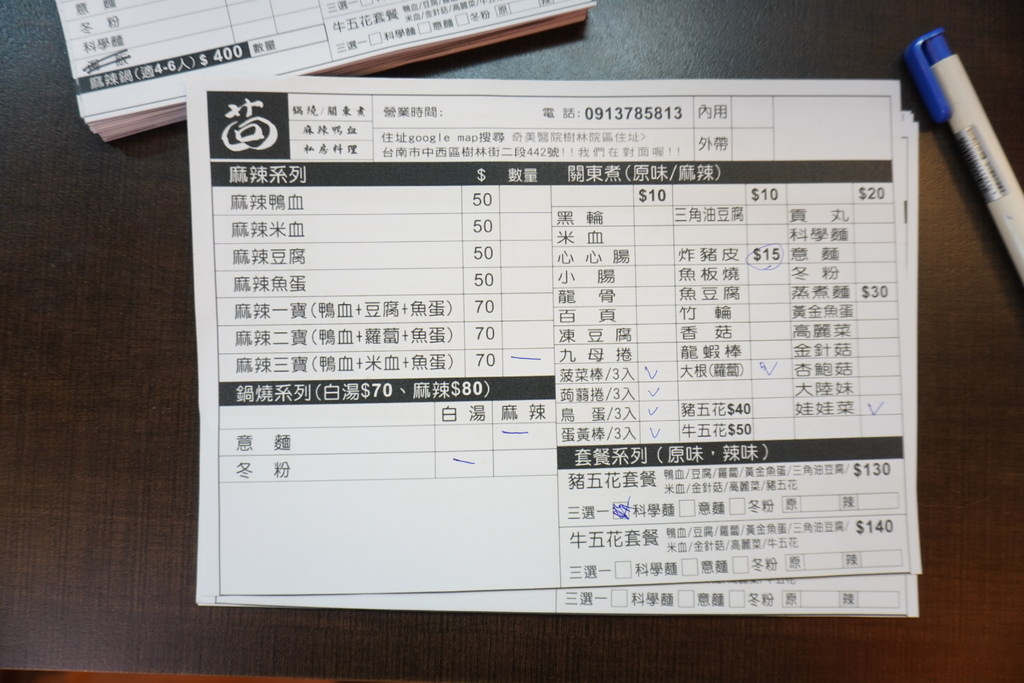 冬 粉
科學麵
麻辣鍋(適4-6人) $ 400 數量
牛五花套餐
米血/金針菇/高麗菜/牛五花
三選一 科學麵 意麵 冬粉
茴
鍋燒/關東煮
麻辣鴨血
私房料理
營業時間: 電話: 0913785813 內用
住址google map搜尋 奇美醫院樹林院區住址> 外帶
台南市中西區樹林街二段442號!!我們在對面喔!!
麻辣系列 $ 數量
麻辣鴨血 50
麻辣米血 50
麻辣豆腐 50
麻辣魚蛋 50
麻辣一寶(鴨血+豆腐+魚蛋) 70
麻辣二寶(鴨血+蘿蔔+魚蛋) 70
麻辣三寶(鴨血+米血+魚蛋) 70 一
鍋燒系列(白湯$70、麻辣$80)
白湯 麻辣
意 麵 一
冬 粉 一
關東煮(原味/麻辣)
$10 $10 $20
黑 輪 三角油豆腐 貢 丸
米 血 科學麵
心心腸 炸豬皮 $15 意 麵
小 腸 魚板燒 冬 粉
龍 骨 魚豆腐 蒸煮麵 $30
百 頁 竹 輪 黃金魚蛋
凍豆腐 香 菇 高麗菜
九母捲 龍蝦棒 金針菇
菠菜棒/3入 ✓ 大根(蘿蔔) ✓ 杏鮑菇
蒟蒻捲/3入 ✓ 大陸妹
鳥 蛋/3入 ✓ 豬五花$40 娃娃菜 ✓
蛋黃棒/3入 ✓ 牛五花$50
套餐系列(原味,辣味)
豬五花套餐 鴨血/豆腐/蘿蔔/黃金魚蛋/三角油豆腐/ $130
米血/金針菇/高麗菜/豬五花
三選一 科學麵 意麵 冬粉 原 辣
牛五花套餐 鴨血/豆腐/蘿蔔/黃金魚蛋/三角油豆腐/ $140
米血/金針菇/高麗菜/牛五花
三選一 科學麵 意麵 冬粉 原 辣
三選一 科學麵 意麵 冬粉 原 辣